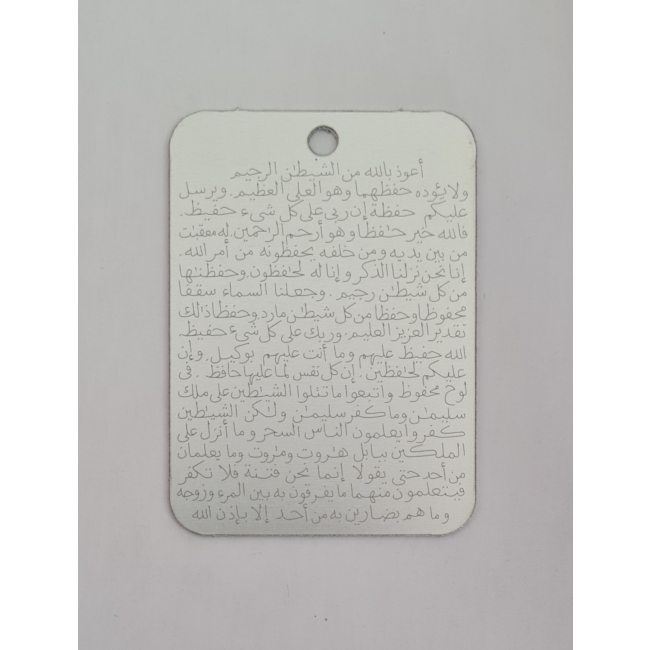 أعوذ بالله من الشيطٰن الرجيم
ولا يؤده حفظهما وهو العلى العظيم. ويرسل
عليكم حفظة إن ربى على كل شىء حفيظ.
فالله خير حٰفظا وهو أرحم الراحمين. له معقبٰت
من بين يديه ومن خلفه يحفظونه من أمر الله.
إنا نحن نزلنا الذكر وإنا له لحٰفظون. وحفظنٰها
من كل شيطٰن رجيم. وجعلنا السماء سقفا
محفوظا وحفظا من كل شيطٰن مارد. وحفظا ذالك
تقدير العزيز العليم. وربك على كل شىء حفيظ.
الله حفيظ عليهم وما أنت عليهم بوكيل. وإن
عليكم لحٰفظين. إن كل نفس لما عليها حافظ. فى
لوح محفوظ واتبعوا ما تتلوا الشيٰطين على ملك
سليمٰن وما كفر سليمٰن ولٰكن الشيٰطين
كفروا يعلمون الناس السحر وما أنزل على
الملكين ببابل هٰروت ومٰروت وما يعلمان
من أحد حتى يقولا إنما نحن فتنة فلا تكفر
فيتعلمون منهما ما يفرقون به بين المرء وزوجه
وما هم بضارين به من أحد إلا بإذن الله